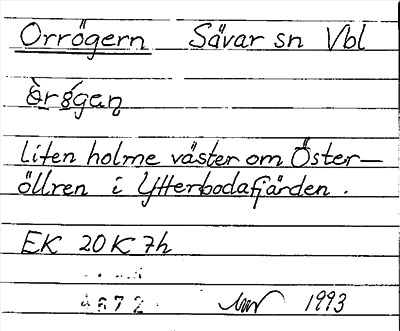 Orrögern Sävar sn Vbl
liten holme väster om Öster-
öllren i Ytterbodafjärden.
EK 20K 7h
4672
1993